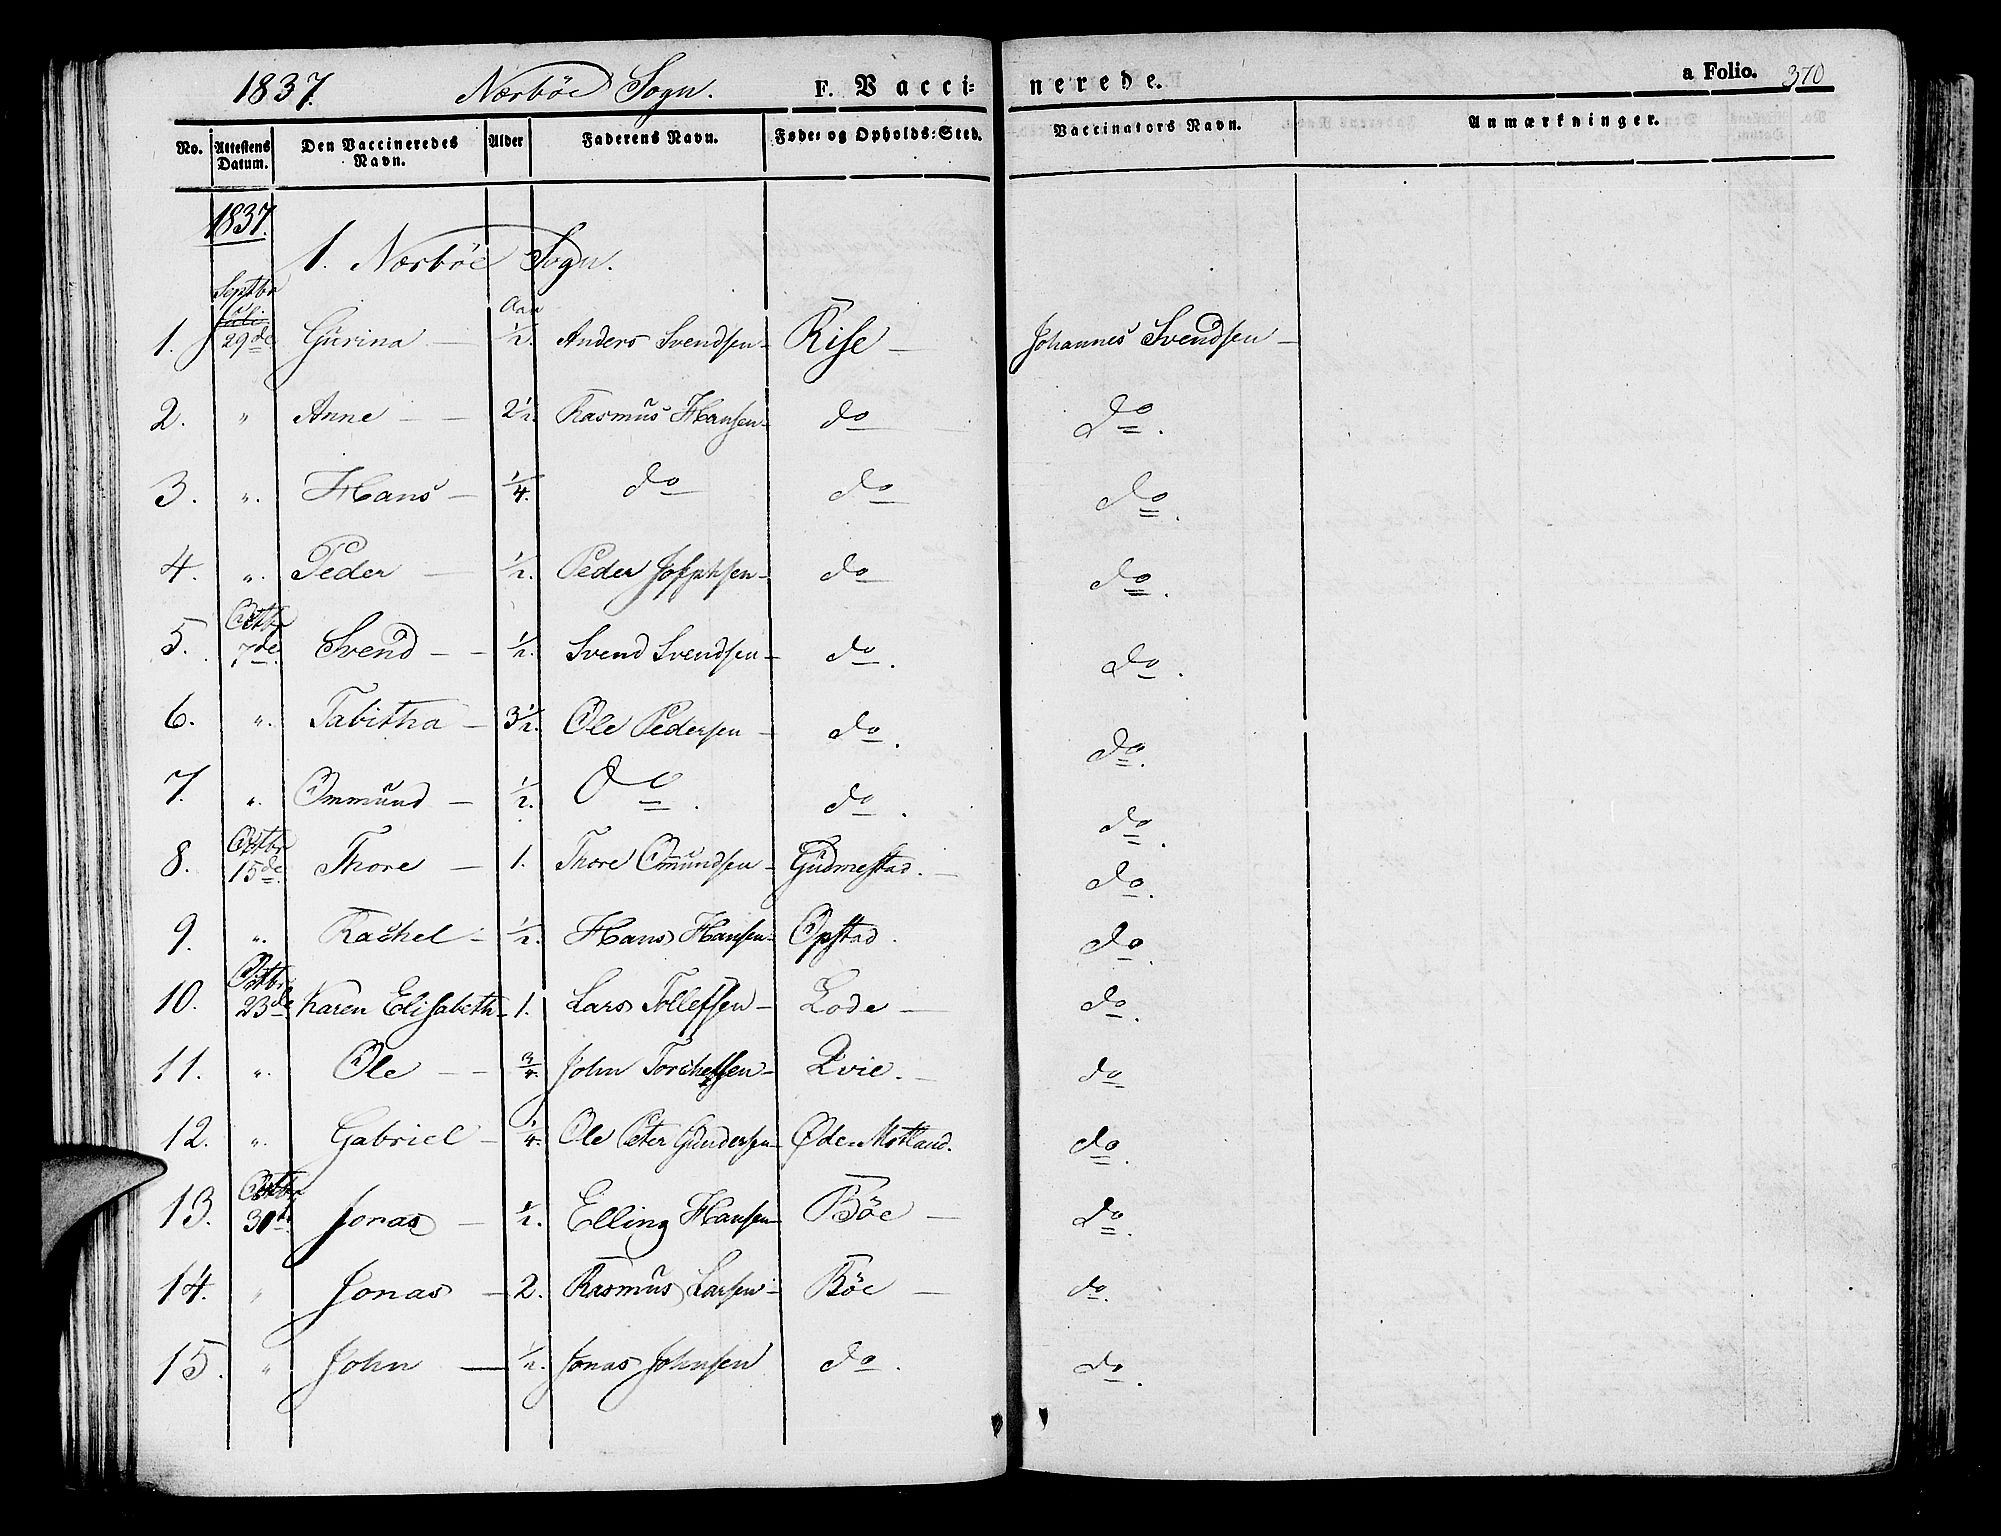 1837. Nærböe Sogn. F. Vacci= nerede. a Folio. 370
No. Attestens Datum. Den Vaccineredes Navn. Alder Faderens Navn. Føde= og Opholds=Sted. Vaccinators Navn. Anmærkninger.
1837.
1. Nærböe Sogn.
Septbr
1. 29de Gurina — Aar 1/2. Anders Svendsen — Rise — Johannes Svendsen —
2. " Anne — 2 1/2. Rasmus Hansen — do do.
3. ". Hans — 1/4. do do do.
4. ". Peder — 1/2. Peder Josephsen — do do.
5. Octbr 7de. Svend — 1/2. Svend Svendsen — do. do.
6. ". Tabitha — 3 1/2. Ole Pedersen — do. do.
7. ". Ommund — 1/2. Do. do. do.
8. Octbr 15de. Thore — 1. Thore Ommundsen — Gudmestad. — do.
9. ". Rachel — 1/2. Hans Hansen — Opstad. do.
10. Octbr 23de Karen Elisabeth — 1. Lars Tollefsen — Lode — do.
11. ". Ole — 3/4. John Torchelsen — Qvie. — do
12. ". Gabriel — 1/4. Ole Peter Gundersen — Øde-Motland. do.
13. Octbr 31te. Jonas — 1/2. Elling Hansen — Böe — do.
14. " Jonas — 2. Rasmus Larsen — Böe — do.
15. " John — 1/2. Jonas Johnsen do. do.